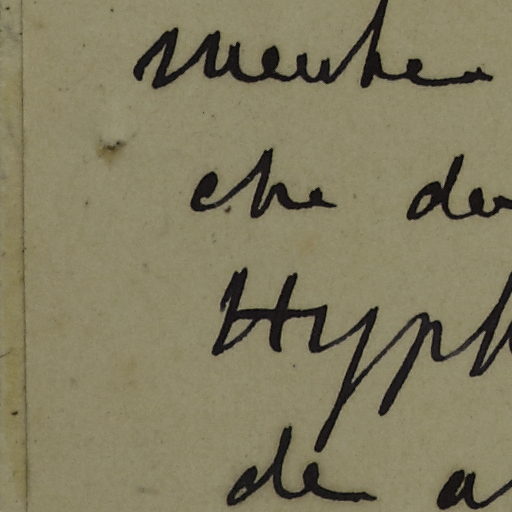 che de
Hyph
de a